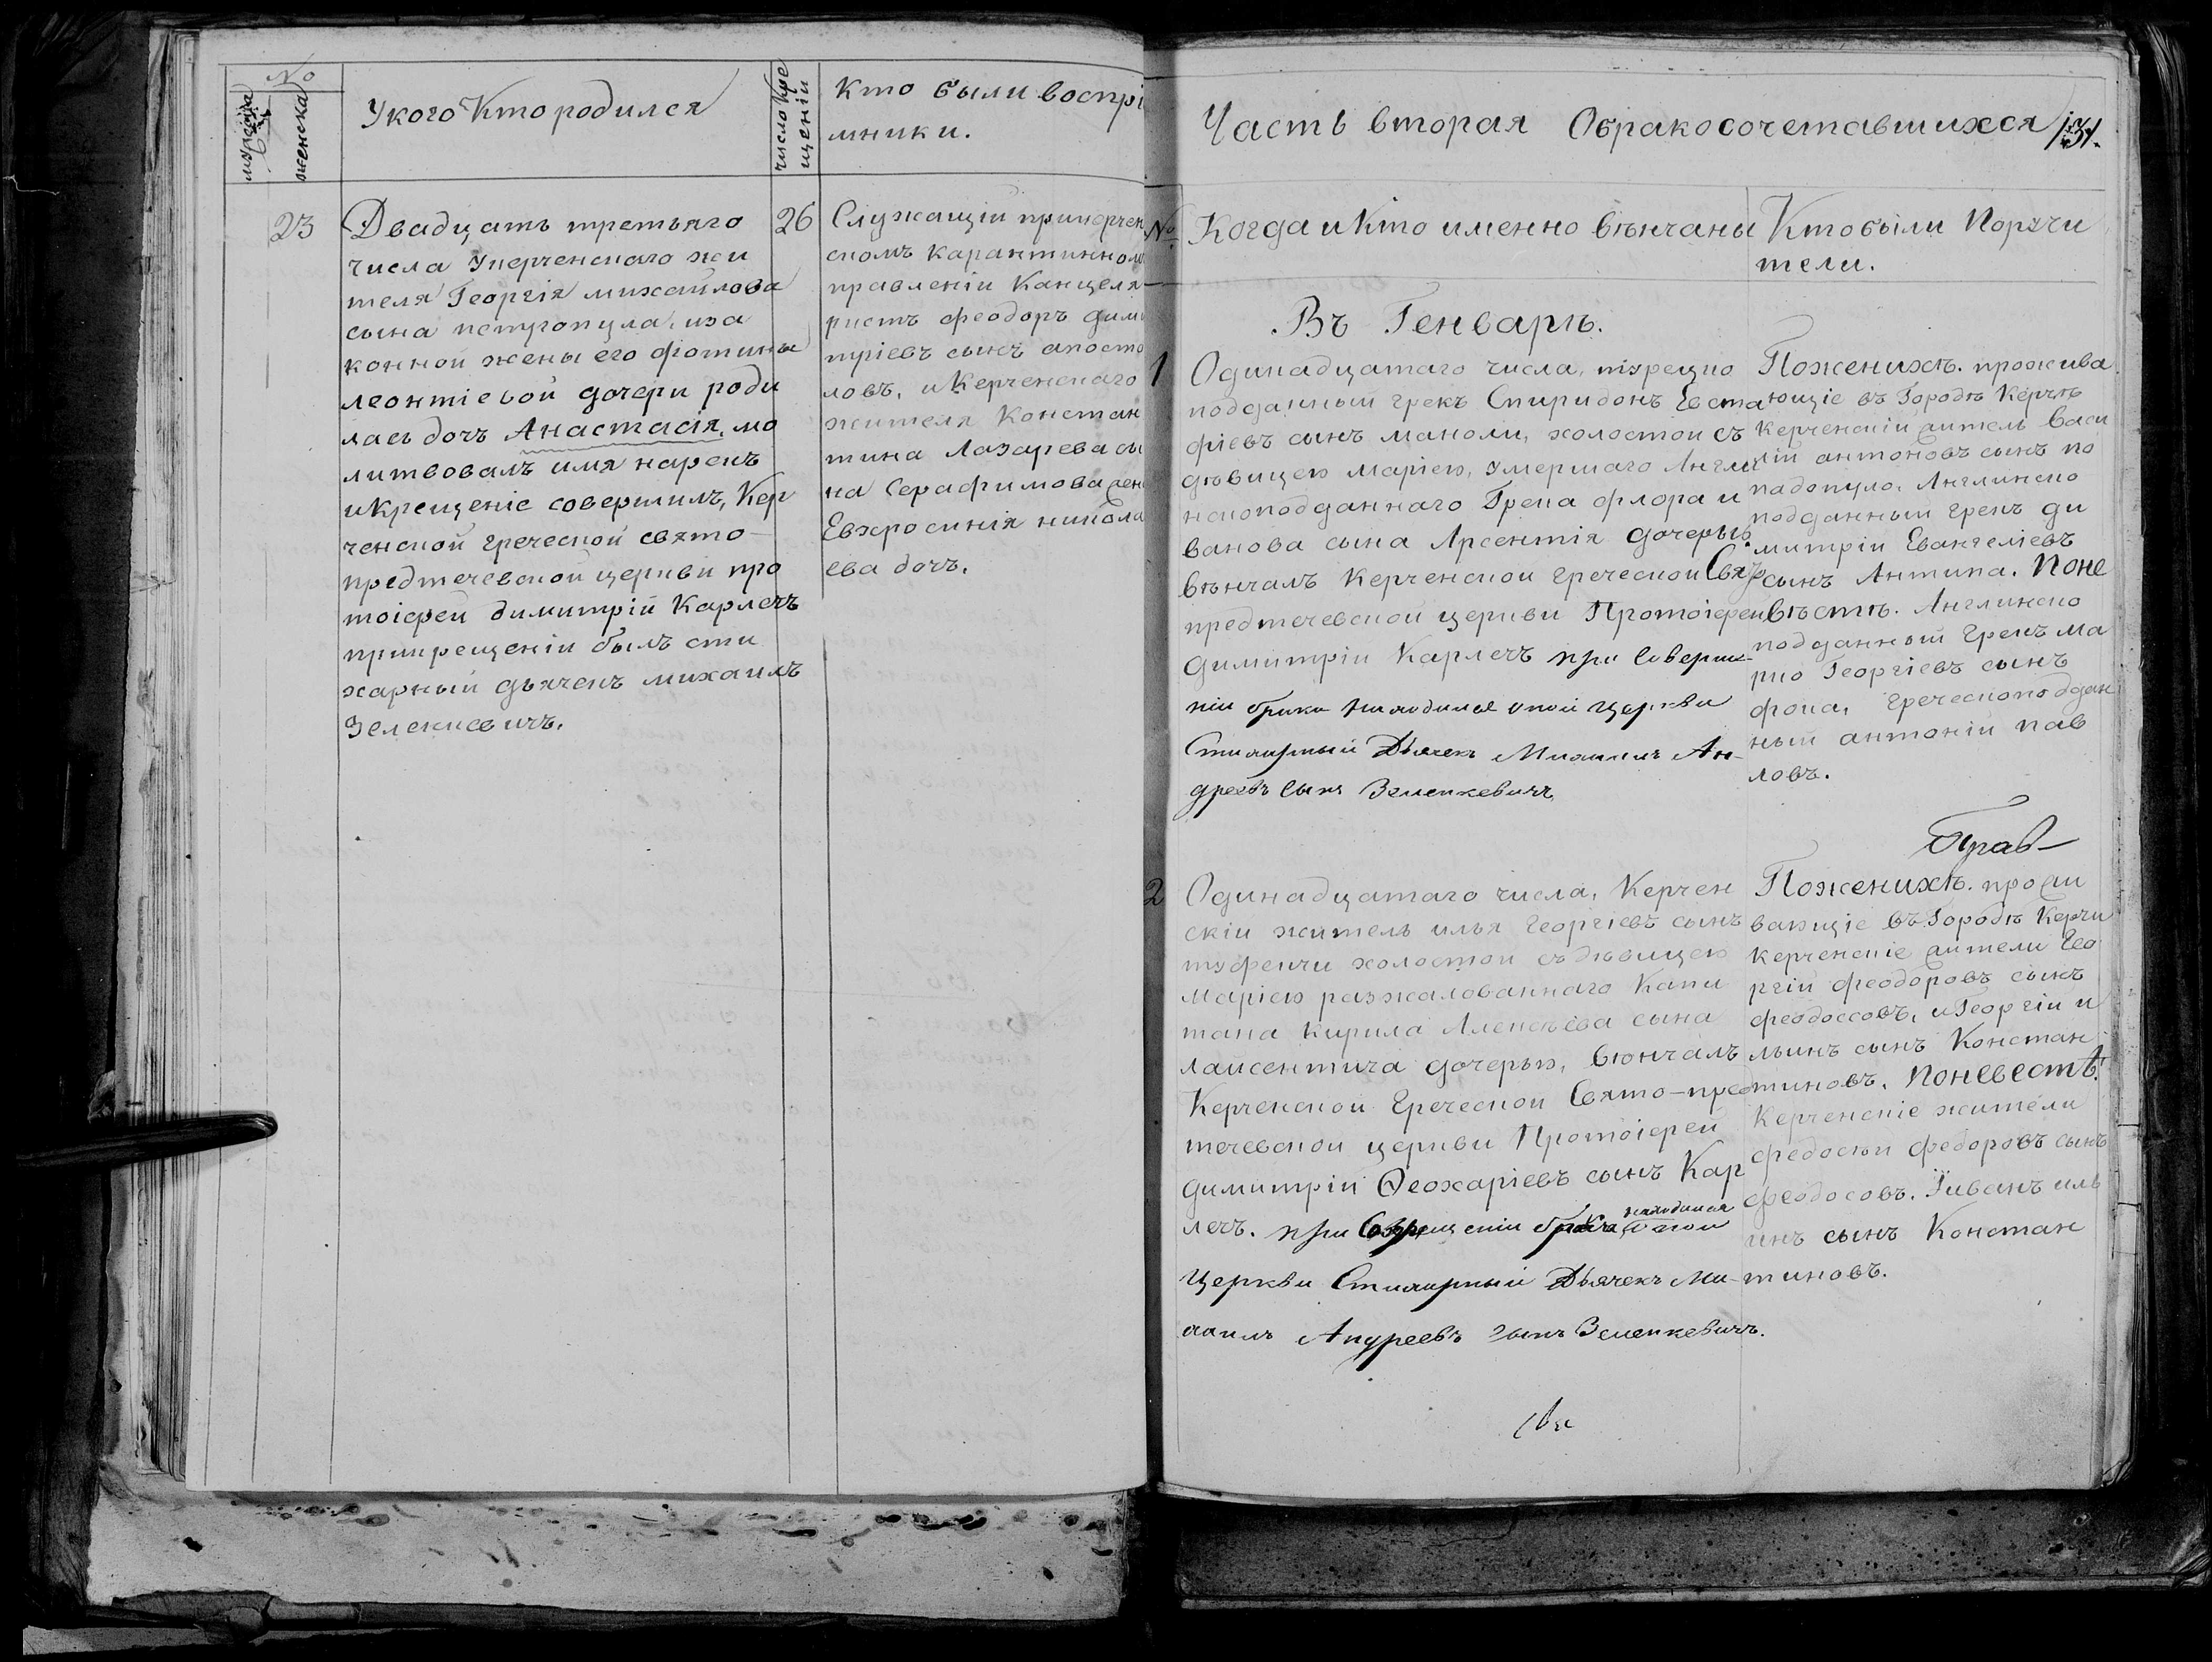 No
мужеска
женска
У кого Кто родился
число Кре
щеніи
Кто были воспрі
мники.
23
Двадцать третьяго
числа укерченскаго жи
теля Георгія михайлова
сына петропула, иза
конной жены его фотины
леонтіевой дочери роди
лась дочь Анастасія, мо
литвовалъ имя нарекъ
и Крещеніе совершилъ, Кер
ченской греческой свято-
предтечевской церкви про
тоіерей димитрій Карлечъ
прикрещеніи былъ сти
харный дьячекъ михаилъ
Зеленкевичъ.
26
Служащій прикерчен
скомъ карантинном
правленіи Канцеля
ристъ феодоръ дими
тріевъ сынъ апосто
ловъ, и Керченскаго
жителя Констан
тина Лазарева сы
на Серафимова жен
Евхросинія никола
ева дочь.
Часть вторая Обракосочетавшихся
131.
№
Когда и Кто именно вѣнчаны
Кто были Поручи
тели.
Въ Генварѣ.
1
Одинадцатаго числа, турецко
подданный грекъ Спиридонъ Евста
фіевъ сынъ маноли, холостой съ
дѣвицею маріею, умершаго Англи
нскоподданнаго Грека флора и
ванова сына Арсентія дочерью.
вѣнчалъ Керченской греческой Свято
предтечевской церкви Протоіерей
Димитрій Карлечъ при Соверше-
ніи брака находился оной церкви
Стихарный Дьячекъ Михаилъ Ан-
дреевъ Сынъ Зеленкевичъ
Поженихѣ. прожива
ющіе въ Городѣ Керчѣ
Керченскій житель Васи
лій антоновъ сынъ по
падопуло, Англинско
подданный грекъ ди
митрій Евангеліевъ
сынъ Антипа. Поне
вѣстѣ. Англинско
подданный Грекъ ма
рко Георгіевъ сынъ
фока, Греческоподдан
ный антоній пав
ловъ.
2
Одинадцатаго числа, Керчен
скій житель илья Георгіевъ сынъ
туфекчи холостой съ дѣвицею
Маріею разжалованнаго Капи
тана Кирила Алексѣева сына
лаисентича дочерью, вѣнчалъ
Керченской Греческой Свято-пред
течевской церкви Протоіерей
димитрій Ѳеохаріевъ сынъ Кар
лечъ. при Совращеніи брака находился оной
Церкви Стихарный Дьячекъ Ми-
хаилъ Андреевъ Сынъ Зеленкевичъ.
Поженихѣ. прожи
вающіе въ Городѣ Керчи
керченскіе жители Гео
ргій феодоровъ сынъ
феодоссовъ, и Георгій и
льинъ сынъ Констан
тиновъ. Поневестѣ:
Керченскіе жители
федосѣй федоровъ сынъ
феодосовъ. Іиванъ иль
инъ сынъ Констан
тиновъ.